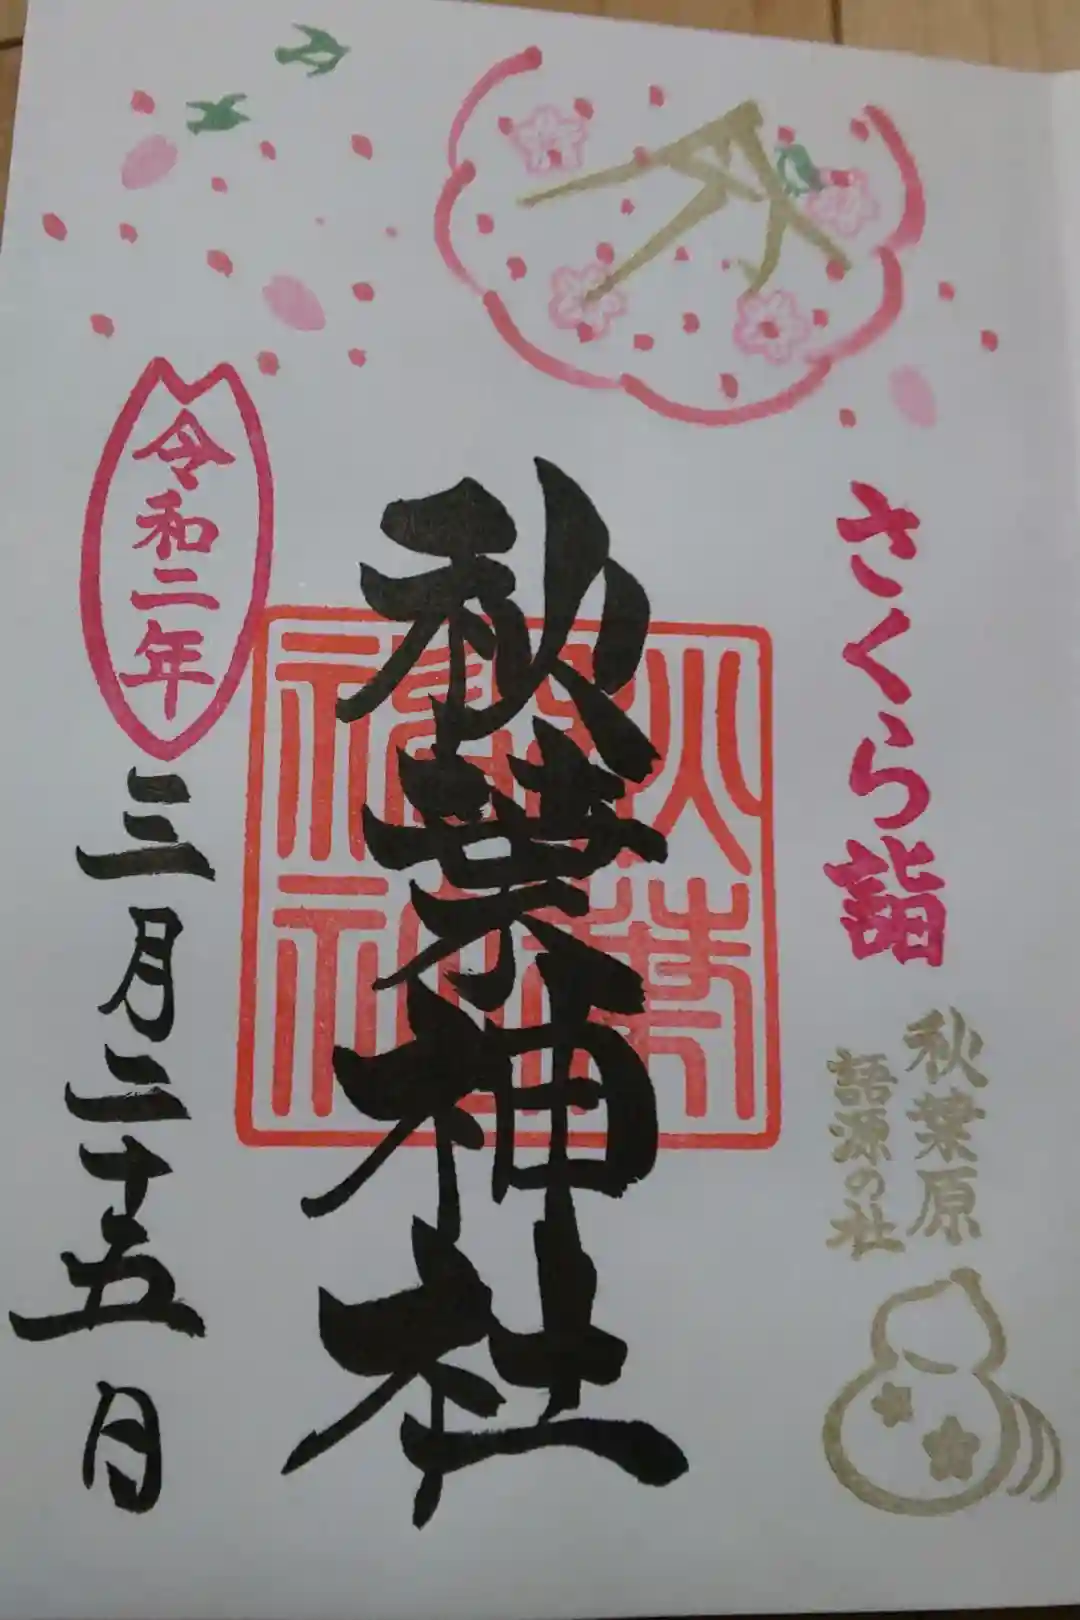 さくら詣
秋葉原
語源の社
秋葉神社
令和二年
三月二十五日